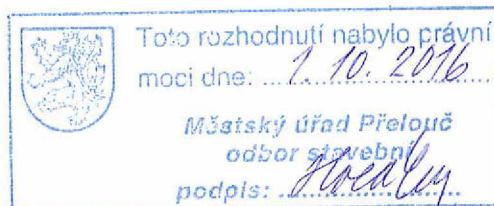 Toto rozhodnutí nabylo právní
moci dne: 1. 10. 2016
Městský úřad Přelouč
odbor stavební
podpis: